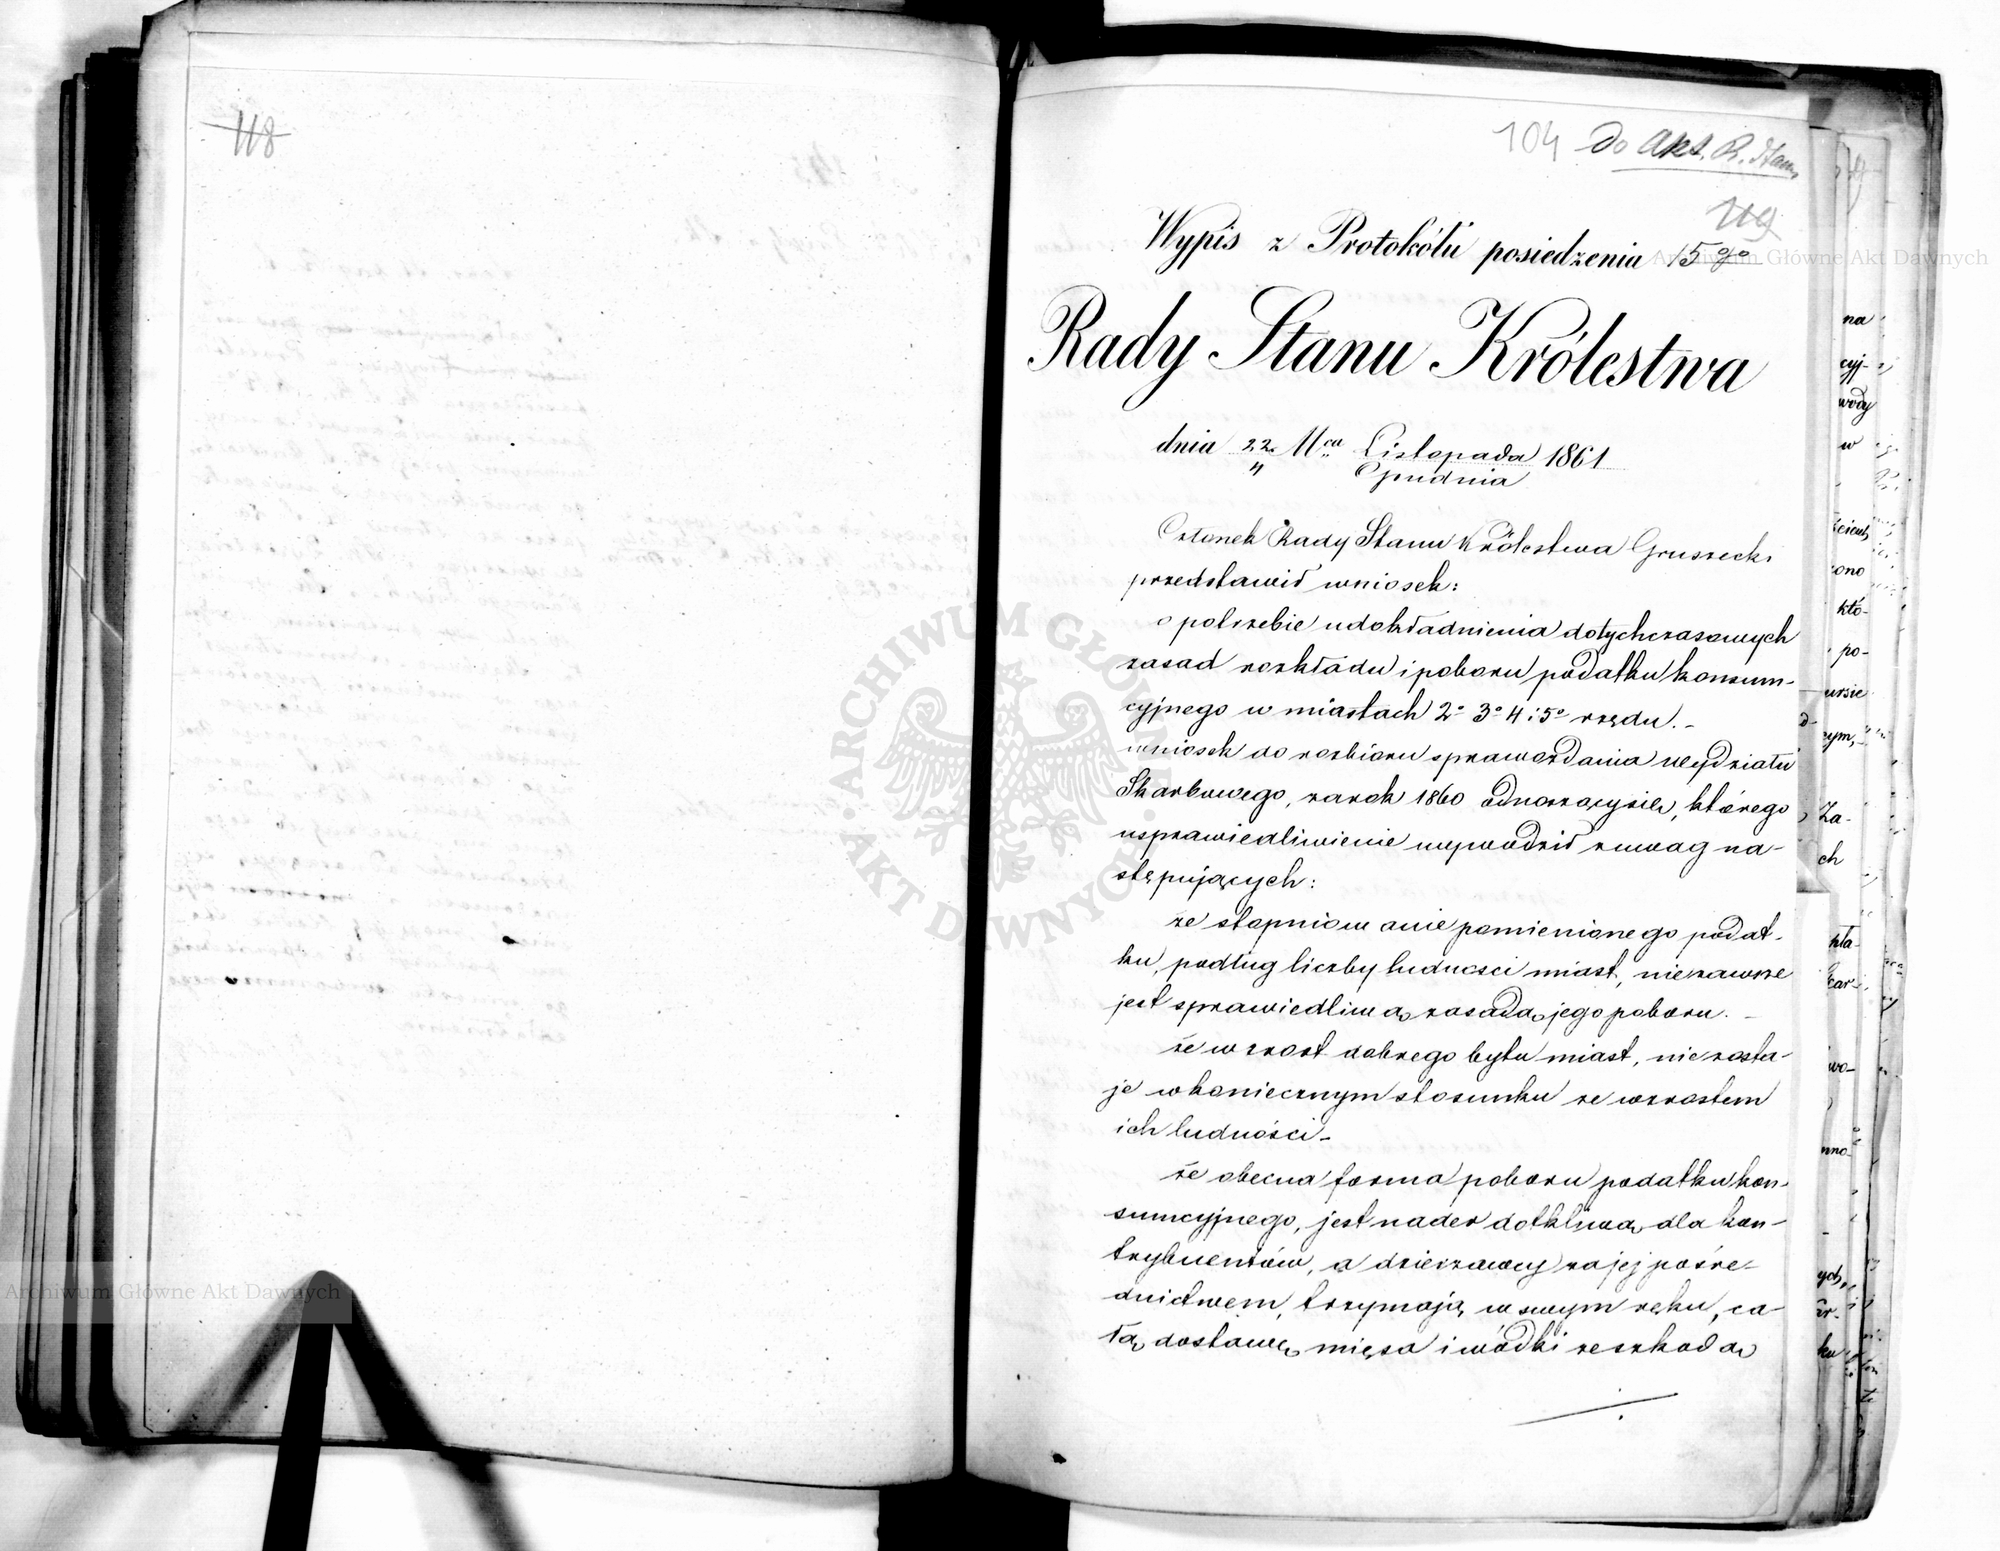 118
104 Do Akt. R. Stanu
119
Wypis z Protokółu posiedzenia 15go
Rady Stanu Królestwa
dnia 22 Mca Listopada 1861
4 Grudnia
Członek Rady Stanu Królestwa Gruszecki
przedstawił wniosek:
o potrzebie udokładnienia dotychczasowych
zasad rozkładu i poboru podatku konsum-
cyjnego w miastach 2o 3o 4 i 5o rzędu. -
wniosek do rozbioru sprawozdania wydziału
Skarbowego, za rok 1860 odnoszący się, którego
usprawiedliwienie wywodził z uwag na-
stępujących:
że stopniowanie pomienionego podat-
ku, podług liczby ludności miast, nie zawsze
jest sprawiedliwą zasadą jego poboru. -
że wzrost dobrego bytu miast, nie zosta-
je w koniecznym stosunku ze wzrostem
ich ludności -
że obecna forma poboru podatku kon-
sumcyjnego, jest nader dotkliwą dla kon-
trybuentów, a dzierzawcy za jej pośre-
dnictwem, trzymają w swym ręku, ca-
łą dostawę mięsa i wódki ze szkodą
na
cyj-
wody
w
ono
któ-
po-
ursie
cym,
Za-
ch
kła-
wo-
nno-
ych,
ku
ARCHIWUM GŁÓWNE AKT DAWNYCH
Archiwum Główne Akt Dawnych
Archiwum Główne Akt Dawnych